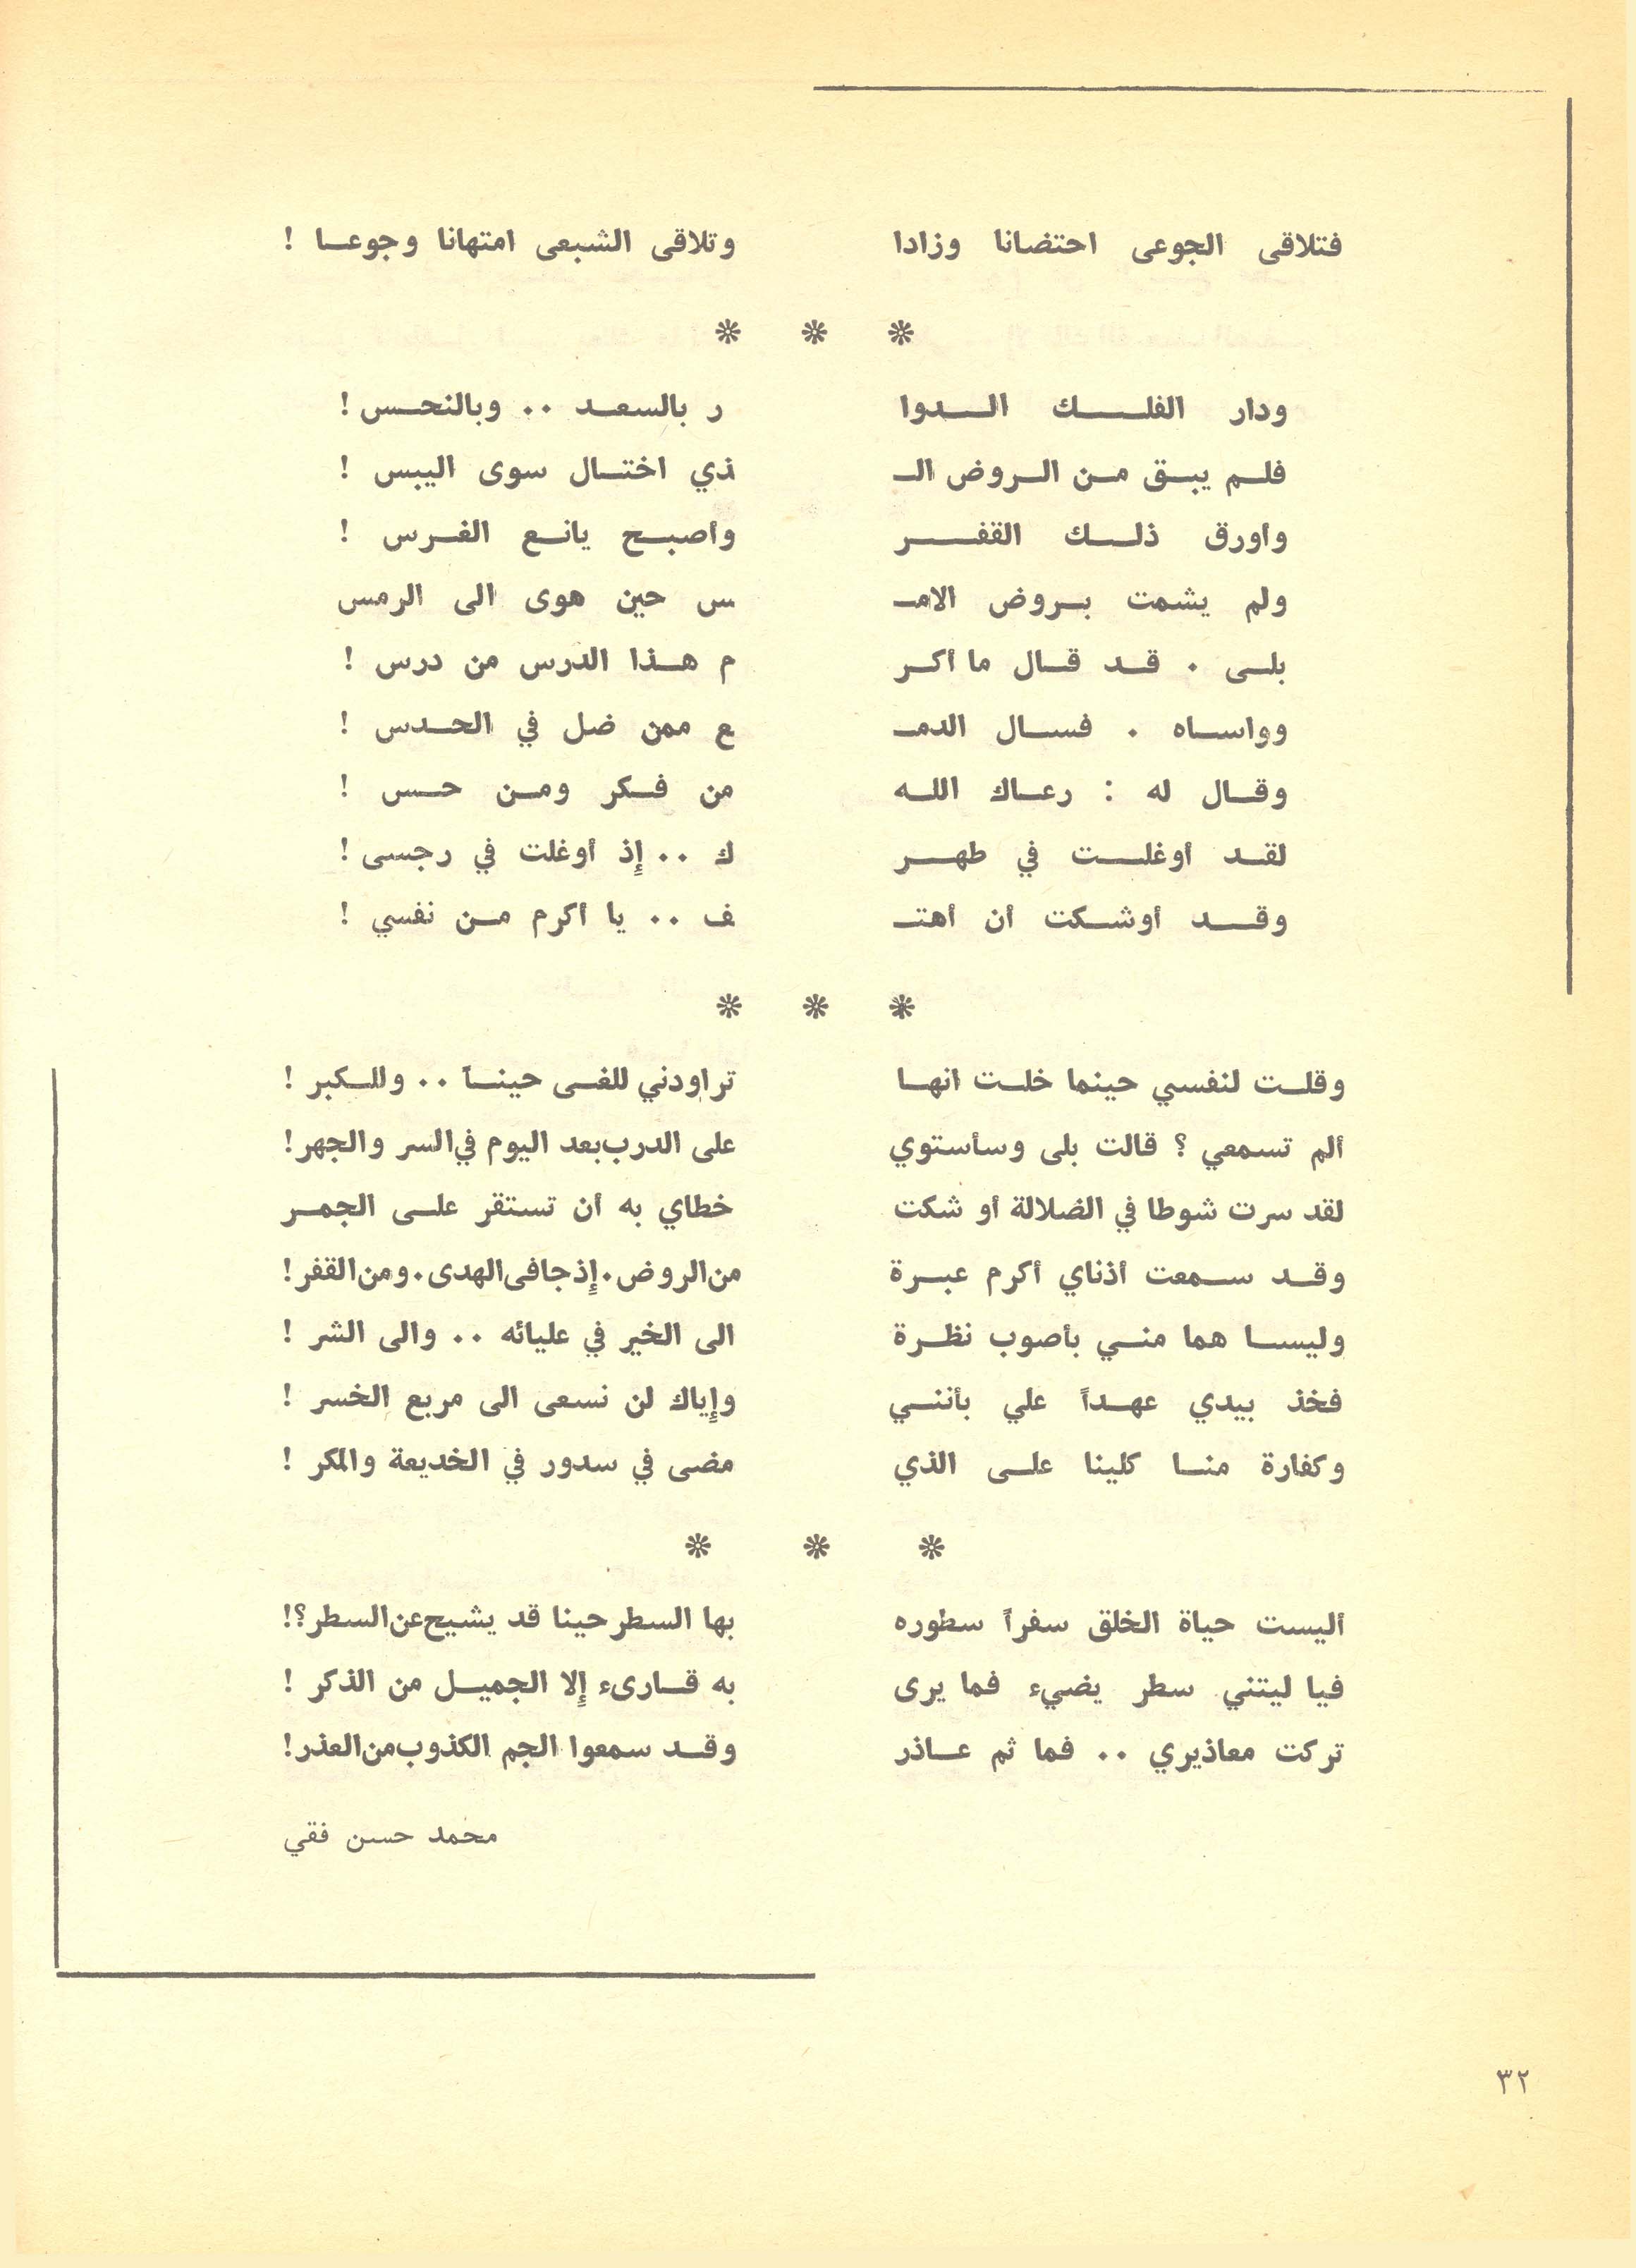 فتلاقى الجوعى احتضانا وزادا وتلاقى الشبعى امتهانا وجوعا !
* * *
ودار الفلك الدوا ر بالسعد .. وبالنحس !
فلم يبق من الروض الـ ـذي اختال سوى اليبس !
واورق ذلك القفر واصبح يانع الغرس !
ولم يشمت بروض الامـ ـس حين هوى الى الرمس
بلى . قد قال ما أكر م هذا الدرس من درس !
وواساه . فسال الدمـ ـع ممن ضل في الحدس !
وقال له : رعاك الله من فكر ومن حس !
لقد أوغلت في طهر ك .. إذ أوغلت في رجسى !
وقد أوشكت أن أهتـ ـف .. يا أكرم من نفسي !
* * *
وقلت لنفسي حينما خلت انها تراودني للغى حيناً .. وللكبر !
ألم تسمعي ؟ قالت بلى وسأستوي على الدرب بعد اليوم في السر والجهر !
لقد سرت شوطا في الضلالة أو شكت خطاي به أن تستقر على الجمر
وقد سمعت أذناي أكرم عبرة من الروض . إذ جافى الهدى . ومن القفر !
وليسا هما مني بأصوب نظرة الى الخير في عليائه .. والى الشر !
فخذ بيدي عهداً علي بأنني وإياك لن نسعى الى مربع الخسر !
وكفارة منا كلينا على الذي مضى في سدور في الخديعة والمكر !
* * *
أليست حياة الخلق سفراً سطوره بها السطر حينا قد يشيح عن السطر ؟!
فيا ليتني سطر يضيء فما يرى به قارىء إلا الجميل من الذكر !
تركت معاذيري .. فما ثم عاذر وقد سمعوا الجم الكذوب من العذر !
محمد حسن فقي
٣٢